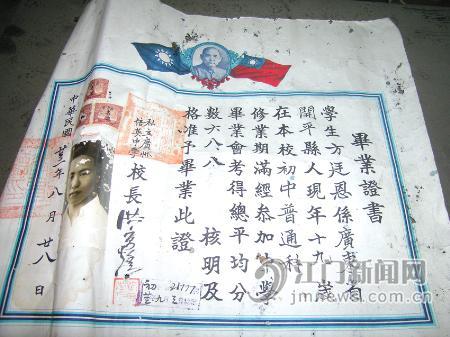 畢業證書
學生方廷恩係廣東省
開平縣人現年十九歲
在本校初中普通科
修業期滿經叅加畢
業會考得總平均分
數六八八 核明及
格准予畢業此證
私立廣州
培英中學
校長
中華民國廿三年八月廿八日
江门新闻网
jmnews.com.cn